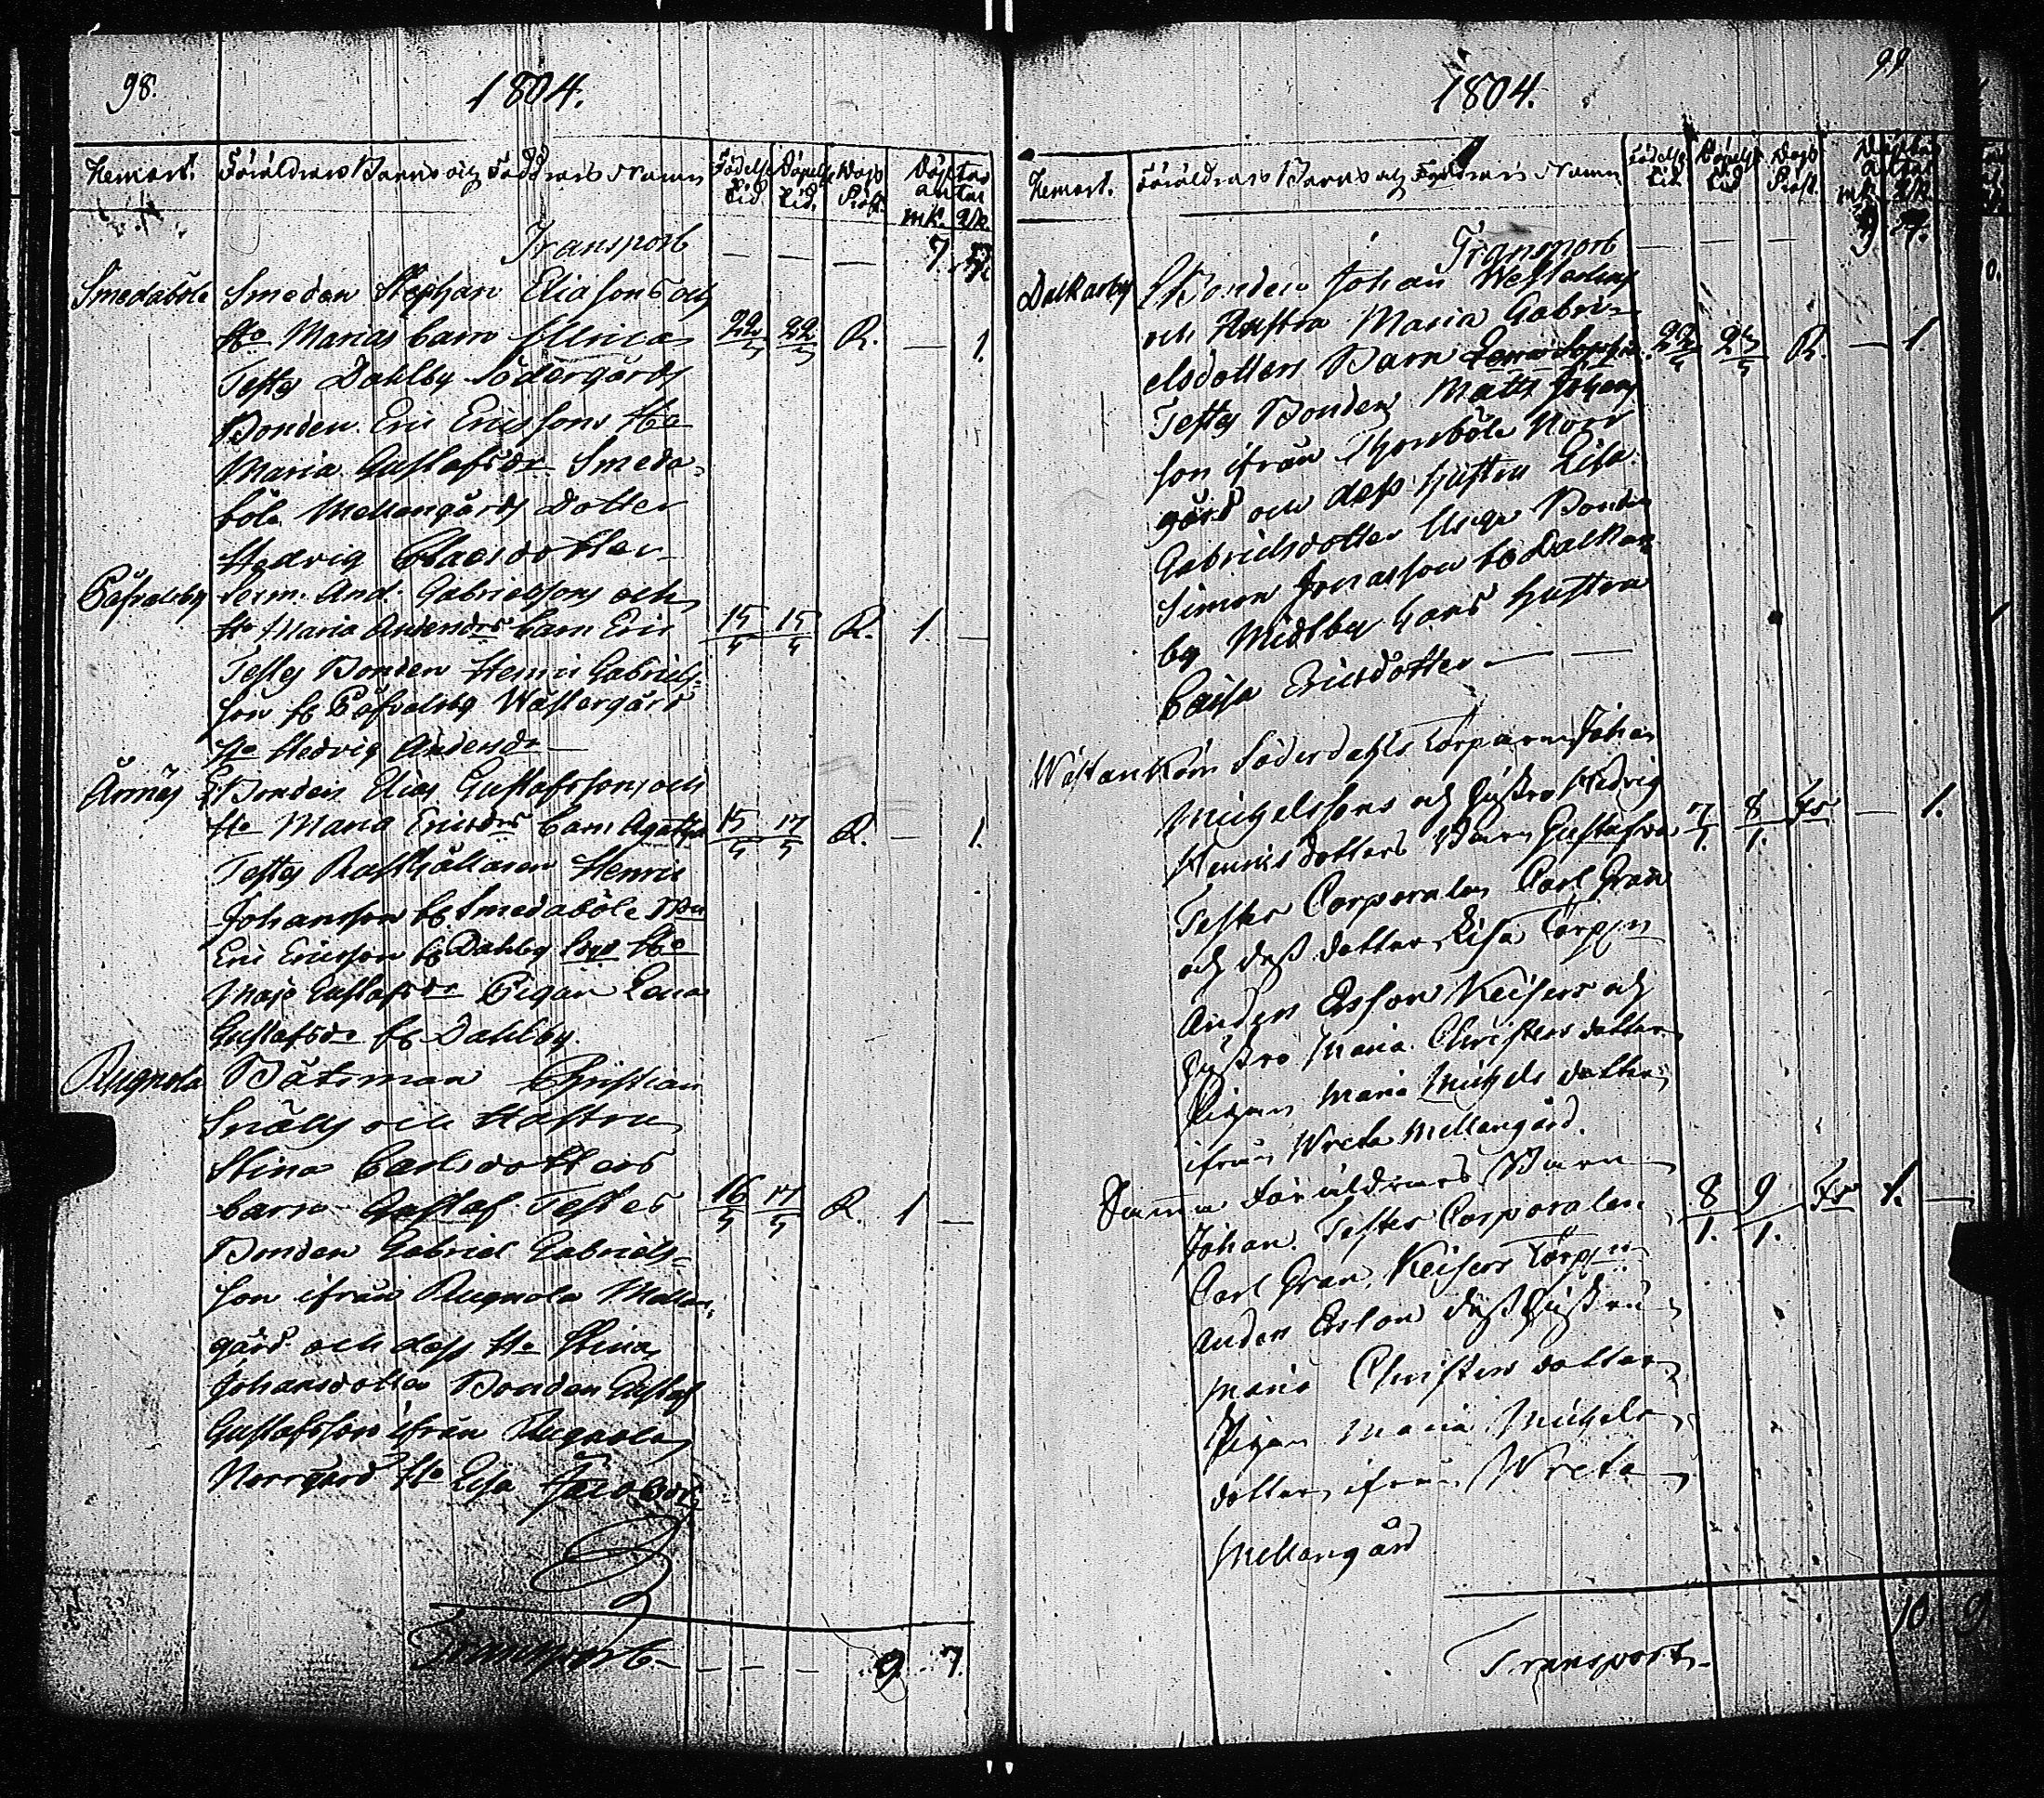 98.
1804.
Hemort. Föräldrars Barns och Faddrars Namn Födelse Tid Döpelse Tid. Dops Präst. Döptas antal mk. Qk.
Transport — — — 7
Smedaböle Smeden Stephan Eliasons och
Ho Marias barn Ulrica 22/3 22/3 R. — 1.
Testes Dahlby Södergårds
Bonden Eric Ericssons Ho
Maria Gustafsdr Smeda-
böle Mellangårds Dotter
Hedvig Claesdotter
Påfvalsby Serm. And. Gabrielssons och
Ho Maria Andersdrs barn Eric 15/4 15/4 R. 1. —
Testes Bonden Henric Gabriels-
son fr Påfvalsby Wästergård
Ho Hedvig Andersdr —
Ämnäs Bonden Elias Gustafssons och
Ho Maria Ericsdrs barn Agatha 15/5 17/5 R. — 1.
Testes Rusthållaren Henric
Johansson fr Smedaböle Bn
Eric Ericsson fr Dahlby Ho
Maja Gustafsdr Pigan Lena
Gustafsdr fr Dahlby.
Rugnola Båtsman Christian
Snälls och Hustru
Stina Carlsdotters
barn Gustaf Testes 16/5 17/5 R. 1 —
Bonden Gabriel Gabriels-
son ifrån Rugnola Mellan-
gård och dess Ho Stina
Johansdotter Bonden Gustaf
Gustafsson ifrån Rugnola
Norrgård Ho Lisa Jacobsdr
Transport — — — 9. 7.
99
1804.
Hemort. Föräldrars Barns och Faddrars Namn Födelse Tid Döpelse Tid Dops Präst. Döptas Antal mk Qk.
Transport — — — 9. 7.
Dalkarby Bonden Johan Westerlunds
och Hustru Maria Gabri-
elsdotters Barn Lena Sophia. 22/4 23/4 R. — 1.
Testes Bonden Matts Johans
son ifrån Thorsböle Norr
gård och dess hustru Lisa
Gabrielsdotter Unge Bonden
Simon Jonasson fr Dalkar
by Midlby hans hustru
Caisa Ericsdotter — —
Söderdahls Torparen Johan
Michelssons och hustru Hedvig
Henricsdotters Barn Gustafva 7/1. 8/1. Fs — 1.
Testes Corporalen Carl Gran
och dess dotter Lisa Torpn
Anders Ersson Keisers och
hustru Maria Christersdotter
Pigan Maria Michelsdotter
ifrån Wreta Mellangård.
Samma Föräldrars Barn
Johan. Testes Corporalen 8/1. 9/1. Fs 1. —
Carl Gran, Keisers Torpn
Anders Ersson dess hustru
Maria Christersdotter
Pigan Maria Michels
dotter ifrån Wreta
Mellangård
10 9
Transport.